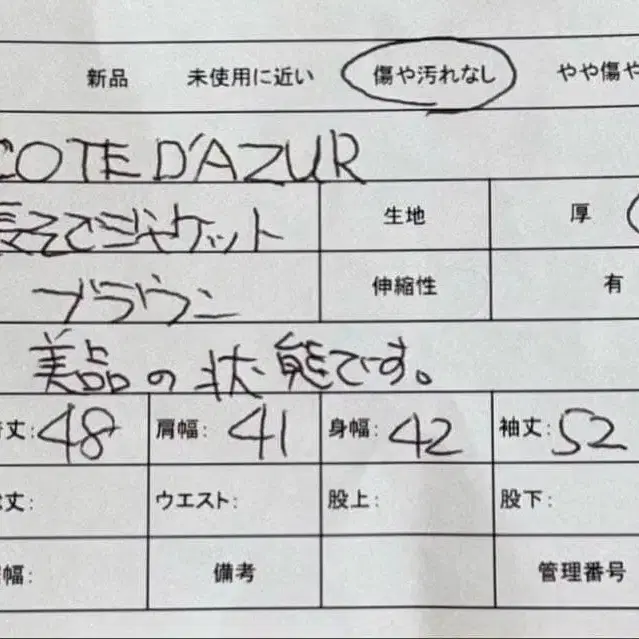 新品 未使用に近い 傷や汚れなし やや傷や
COTE D'AZUR
長そでジャケット 生地 厚
ブラウン 伸縮性 有
美品の状態です。
丈: 48 肩幅: 41 身幅: 42 袖丈: 52
丈: ウエスト: 股上: 股下:
幅: 備考 管理番号